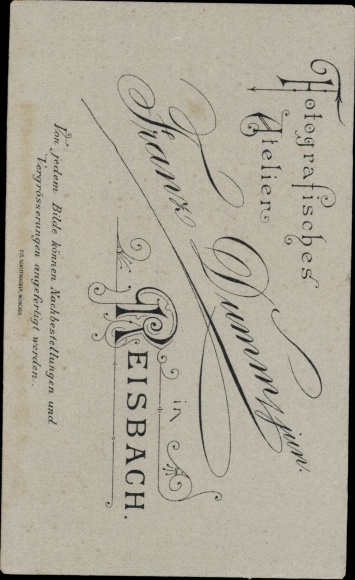 Fotografisches
Atelier
Franz Dummy jun.
in
REISBACH.
Von jedem Bilde können Nachbestellungen und
Vergrösserungen angefertigt werden.